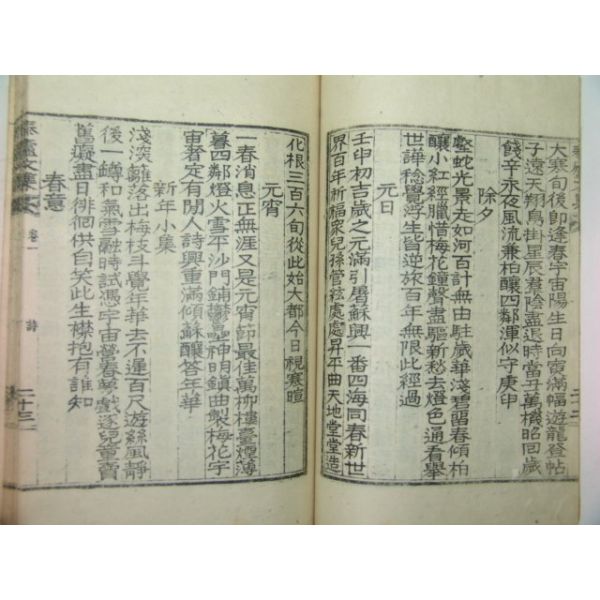 大寒旬後卽逢春宇宙陽生日向寅滿幅遊龍登帖
子遠天翔鳥掛星辰羣陰盡退時當丑萬機昭回歲
餞辛永夜風流兼柏釀四鄰渾似守庚申
除夕
壑蛇光景走如河百計無由駐歲華淺碧留春傾柏
釀小紅經臘惜梅花鐘聲盡驅新愁去燈色通看擧
世譁稔覺浮生皆逆旅百年無限此經過
元日
壬申初吉歲之元滿引屠蘇興一番四海同春新世
界百年祈福衆兒孫管絃處處昇平曲天地堂堂造
化根三百六旬從此始大都今日視寒暄
元宵
一春消息正無涯又是元宵節最佳萬柳樓臺煙薄
暮四鄰燈火雪平沙門鋪鬱壘神明鎭曲製梅花宇
宙奢定有閒人詩興重滿傾蘇釀答年華
新年小集
淺深籬落出梅枝斗覺年華去不遲百尺遊絲風靜
後一罇和氣雪融時試憑宇宙營春夢戲逐兒童賣
舊癡盡日徘徊供自笑此生襟抱有誰知
春意
卷一
詩
二十三